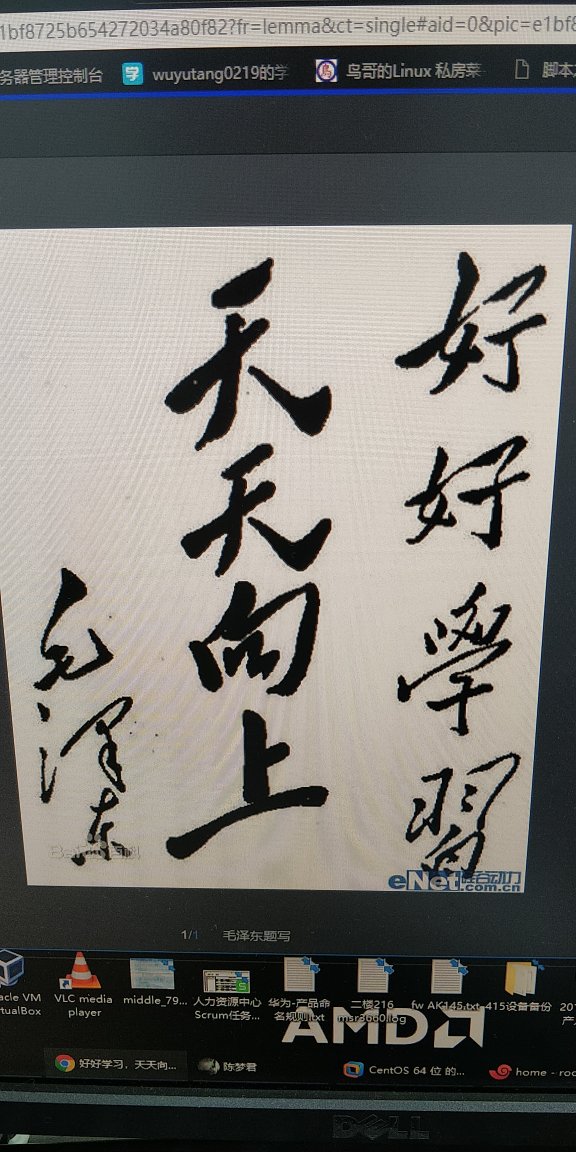 1bf8725b654272034a80f82?fr=lemma&ct=single#aid=0&pic=e1bf8
务器管理控制台 学 wuyutang0219的学 鸟 鸟哥的Linux 私房菜 脚本
好好學習
天天向上
毛澤东
eNet硅谷动力
.com.cn
1/1 毛泽东题写
acle VM
rtualBox
VLC media
player
middle_79...
人力资源中心
Scrum任务...
华为-产品命
名规则.txt
二楼216
msr3660.log
fw AK145.txt
-415设备备份
201
AMD
好好学习，天天向...
陈梦君
CentOS 64 位 的...
home - roo
DELL